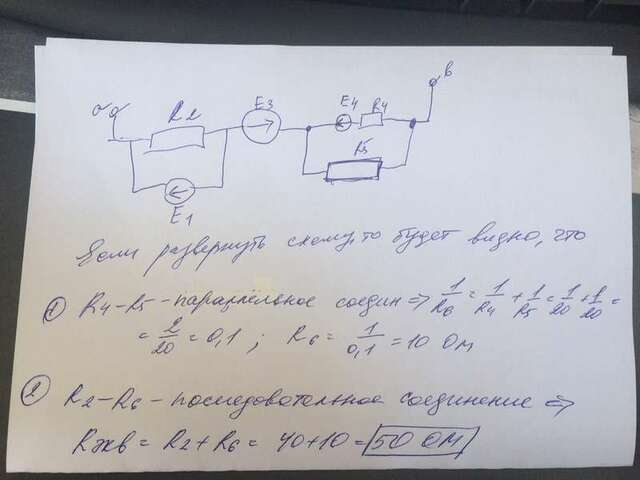 a R2 E3 E4 R4 в
R5
E1
Если развернуть схему, то будет видно, что
① R4-R5 - параллельное соедин ⇒ 1/R6 = 1/R4 + 1/R5 = 1/20 + 1/20 =
= 2/20 = 0,1 ; R6 = 1/0,1 = 10 Ом
② R2-R6 - последовательное соединение ⇒
Rэкв = R2 + R6 = 40+10 = 50 Ом